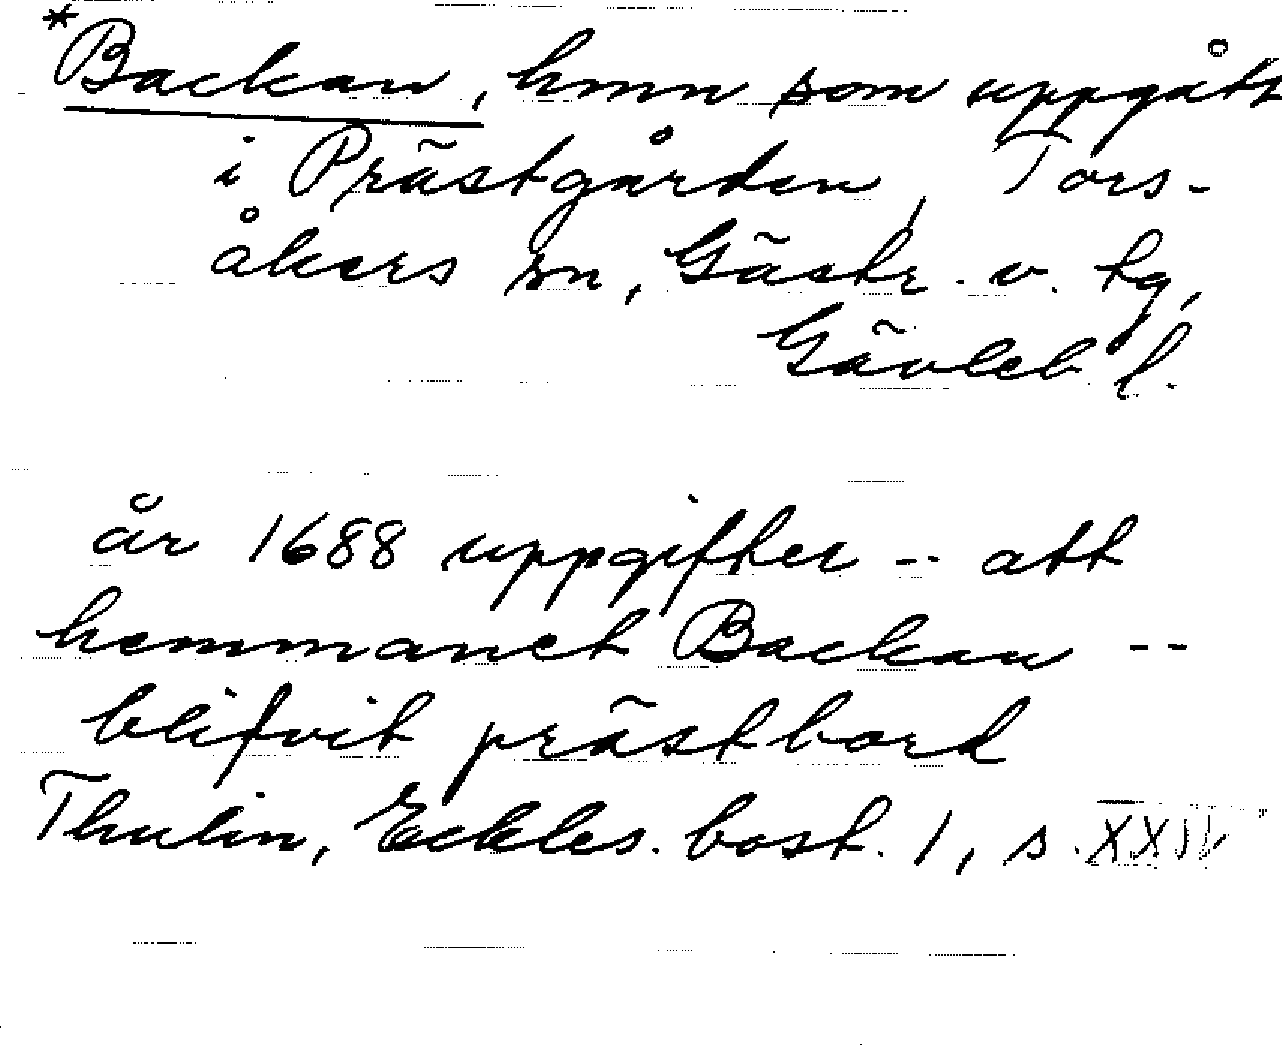 *Backan, hmn som uppgått
i Prästgården, Tors-
åkers sn, Gästr. v. tg,
Gävleb. l.
år 1688 uppgifter -- att
hemmanet Backan --
blifvit prästbord
Thulin, Eckles. bost. 1, s.